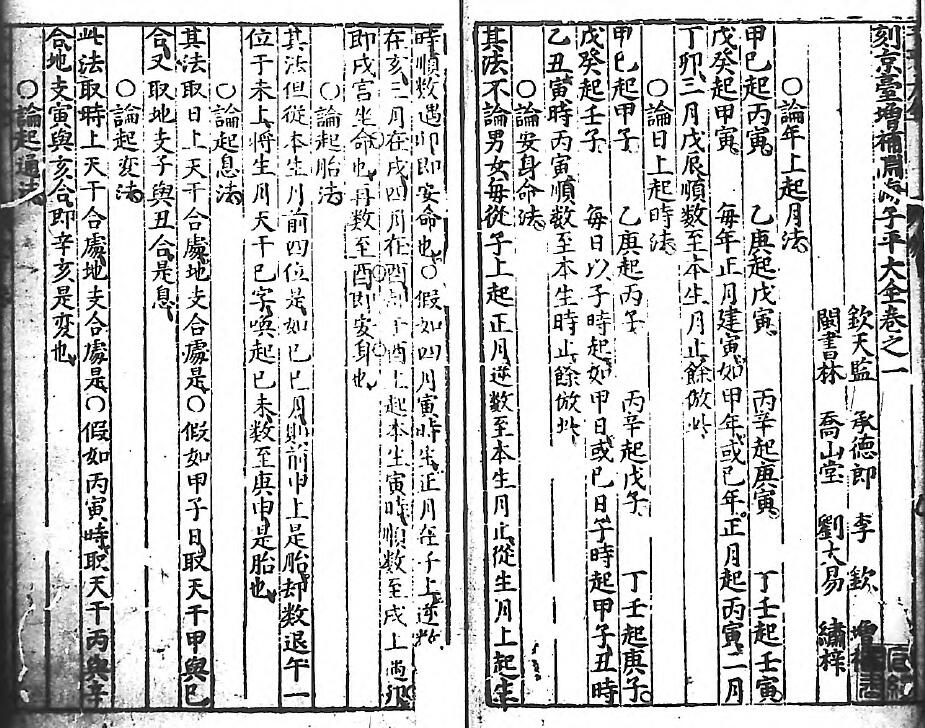 刻京臺增補淵海子平大全卷之一
欽天監 承德郎 李欽 增補
閩書林 喬山堂 劉大易 繡梓
○論年上起月法
甲己起丙寅 乙庚起戊寅 丙辛起庚寅 丁壬起壬寅
戊癸起甲寅 每年正月建寅如甲年或己年正月起丙寅二月
丁卯三月戊辰順數至本生月止餘倣此
○論日上起時法
甲己起甲子 乙庚起丙子 丙辛起戊子 丁壬起庚子
戊癸起壬子 每日以子時起如甲日或己日子時起甲子丑時
乙丑寅時丙寅順數至本生時止餘倣此
○論安身命法
其法不論男女每從子上起正月逆數至本生月止從生月上起生
時順數遇卯即安命也○假如四月寅時生正月在子上逆數
在亥三月在戌四月在酉却于酉上起本生寅時順數至戌上遇卯
即戌宫坐命也再數至酉即安身也
○論起胎法
其法但從本生月前四位是如己巳月則前申上是胎却數退午一
位于未上將生月天干己字喚起己未數至庚申是胎也
○論起息法
其法取日上天干合處地支合處是○假如甲子日取天干甲與己
合又取地支子與丑合是息
○論起変法
此法取時上天干合處地支合處是○假如丙寅時取天干丙與辛
合地支寅與亥合即辛亥是変也
○論起通法